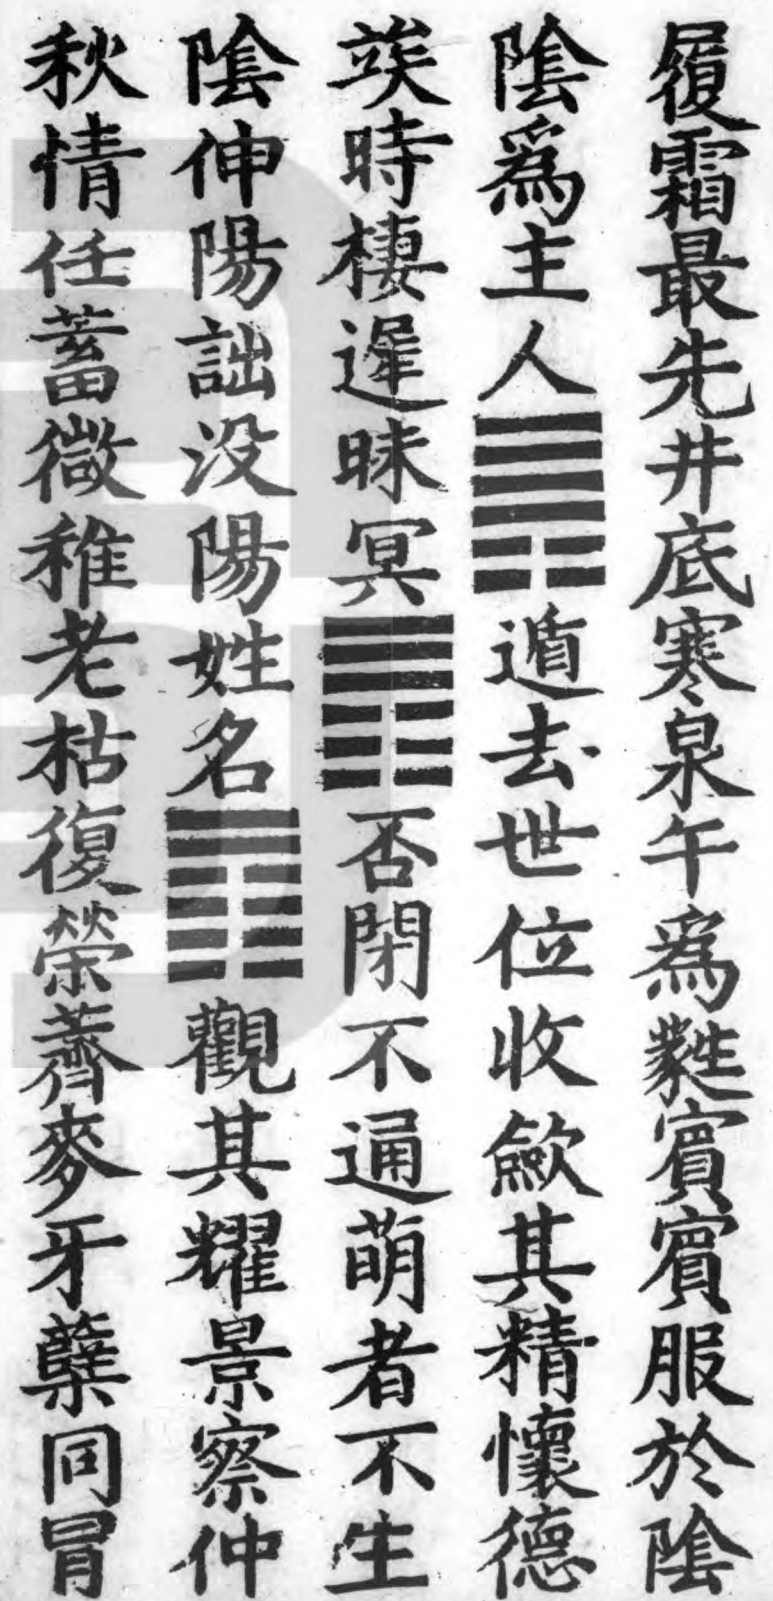 履霜最先井底寒泉午爲蕤賓賓服於陰
陰爲主人䷠遁去世位收歛其精懷德
竢時棲遲昧冥䷋否閉不通萌者不生
陰伸陽詘没陽姓名䷓觀其耀景察仲
秋情任蓄微稚老枯復榮薺麥牙蘖同冒